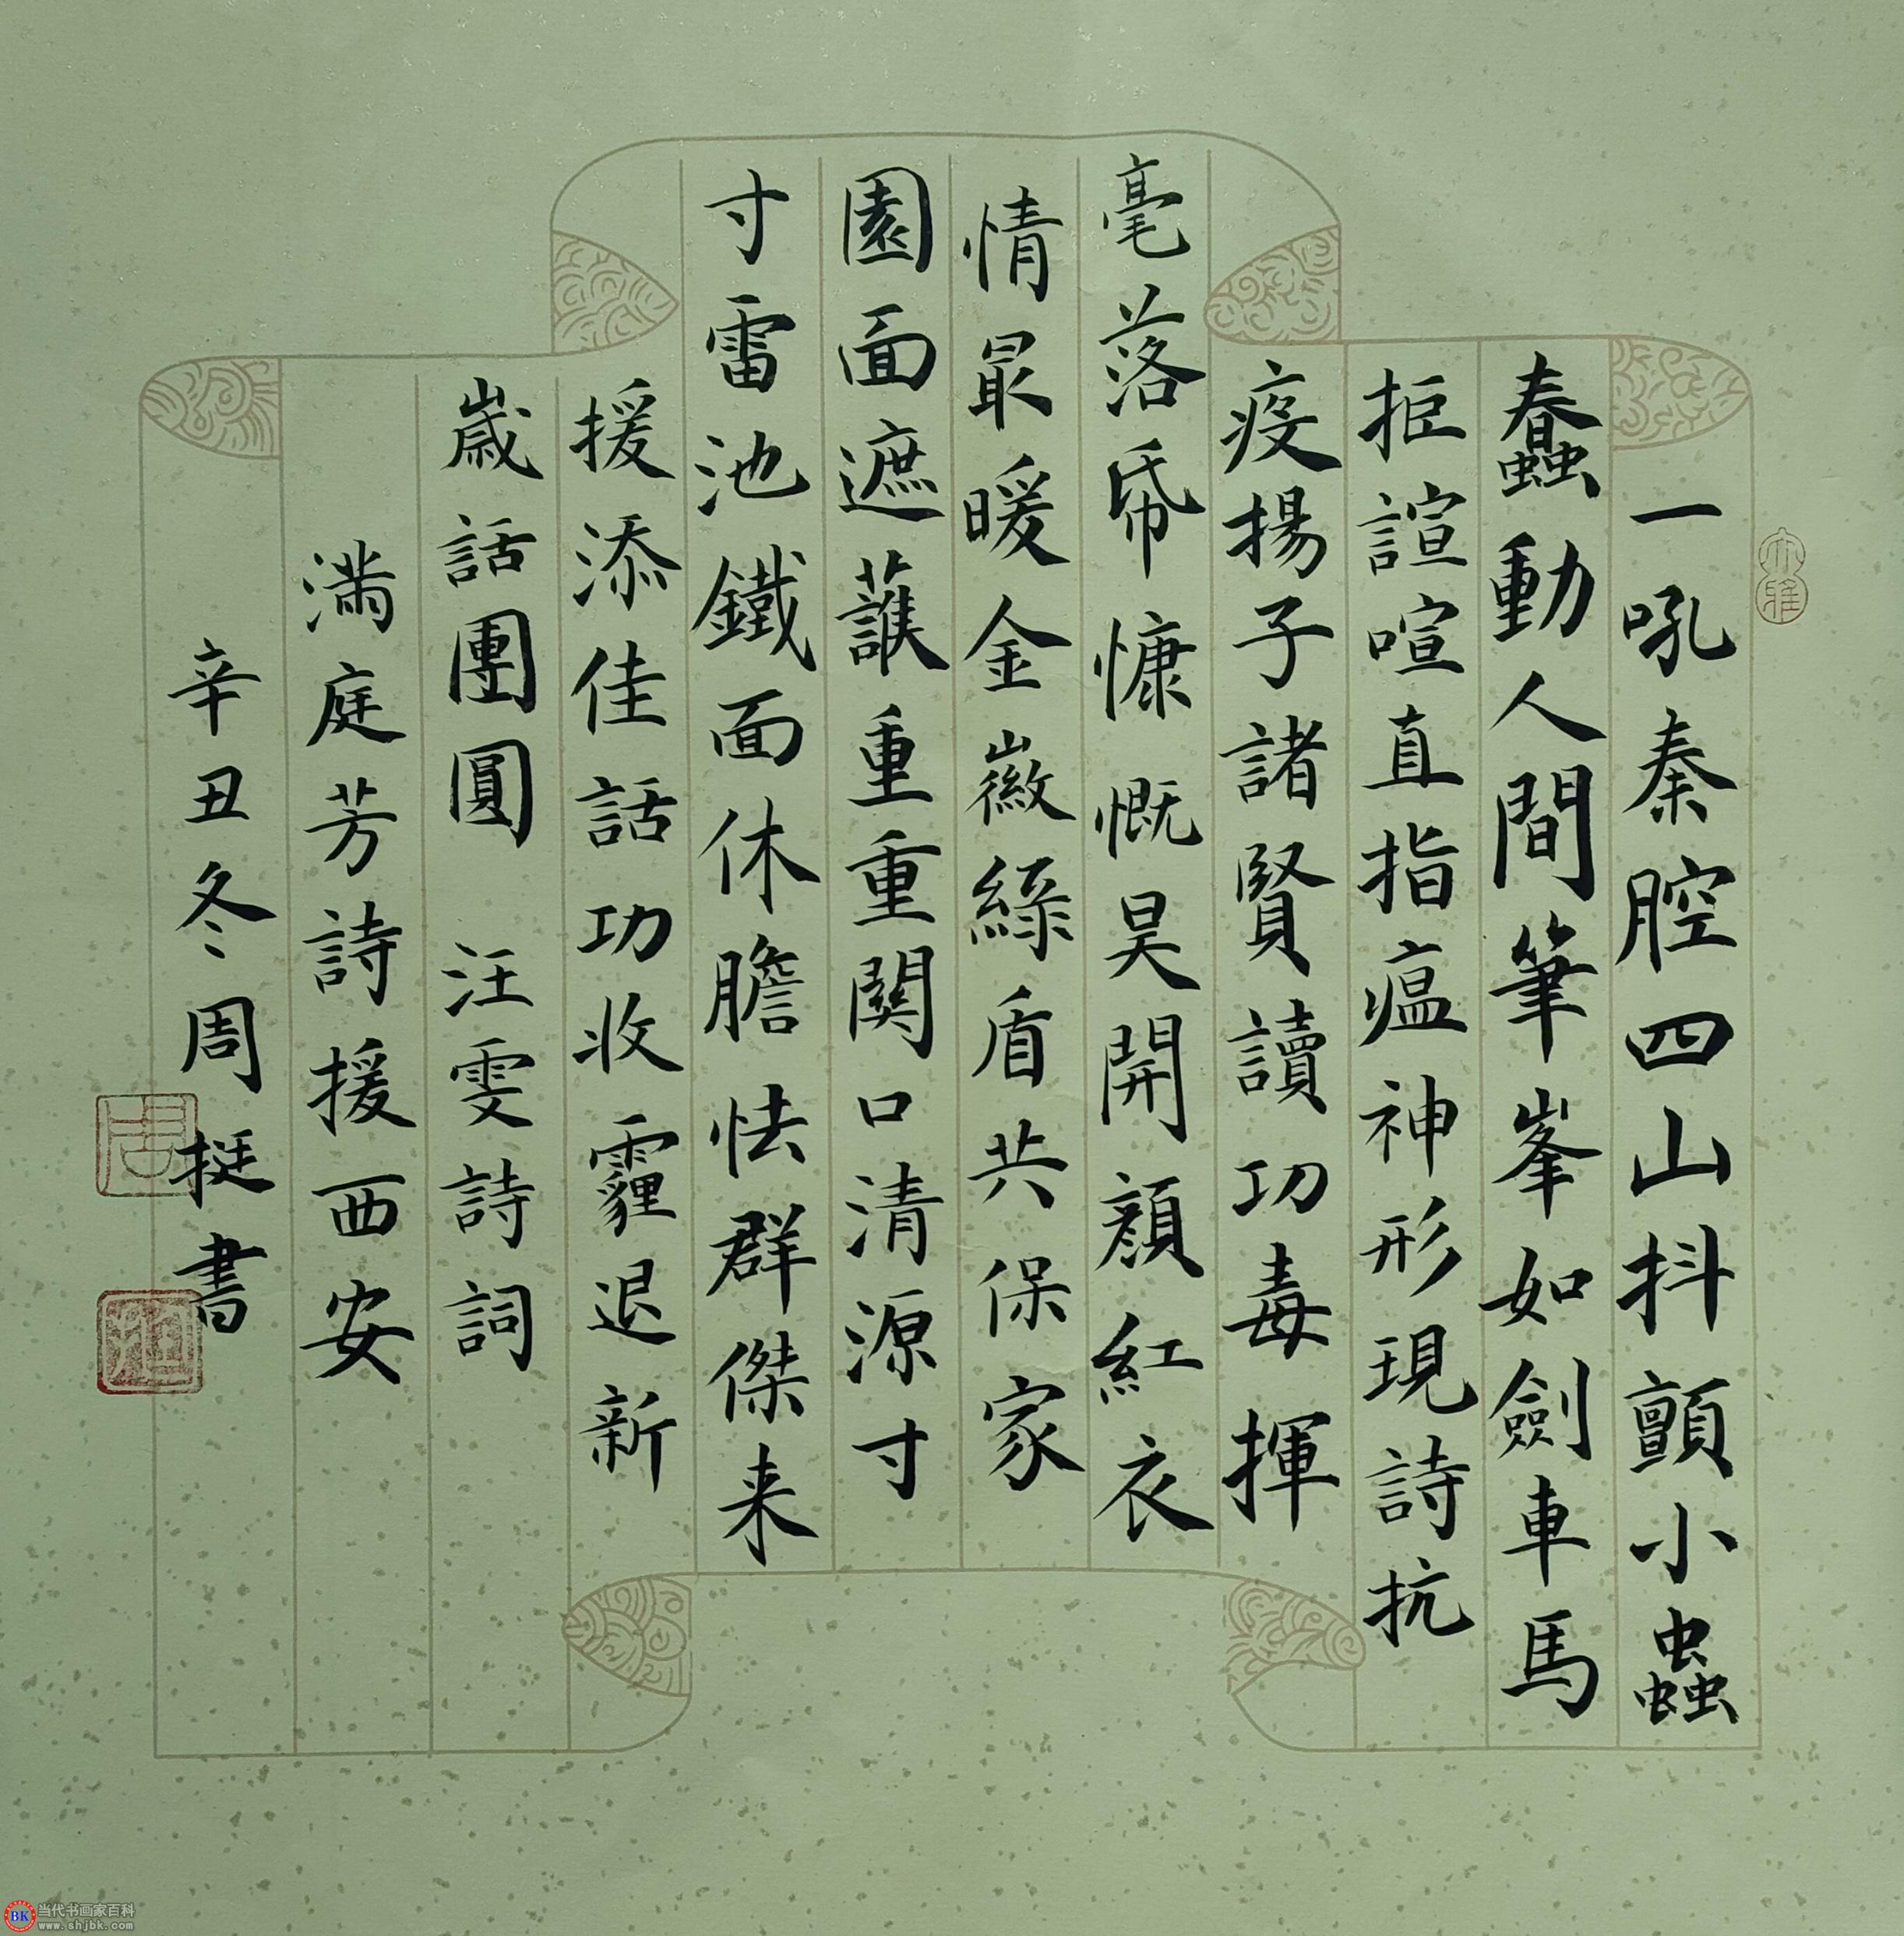 一吼秦腔四山抖顫小蟲
蠢動人間筆峯如劍車馬
拒諠喧直指瘟神形現詩抗
疫揚子諸賢讀功毒揮
毫落帋慷慨昊開顏紅衣
情最暖金徽綠盾共保家
園面遮護重重関口清源寸
寸雷池鐵面休膽怯群傑来
援添佳話功收霾退新
歲話團圓 汪雯詩詞
滿庭芳詩援西安
辛丑冬周挺書
大雅
周
当代书画家百科
www.shjbk.com